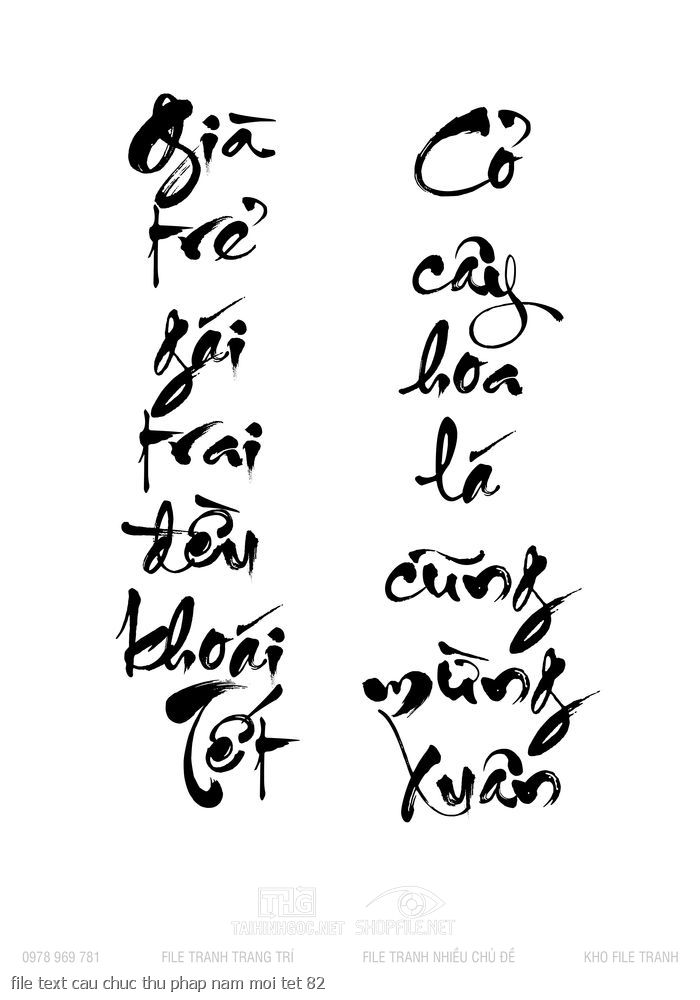 Già
trẻ
gái
trai
đều
khoái
Tết
Cỏ
cây
hoa
lá
cũng
mừng
Xuân
THG
TAIHINHGOC.NET
SHOPFILE.NET
0978 969 781
FILE TRANH TRANG TRÍ
FILE TRANH NHIỀU CHỦ ĐỀ
KHO FILE TRANH
file text cau chuc thu phap nam moi tet 82